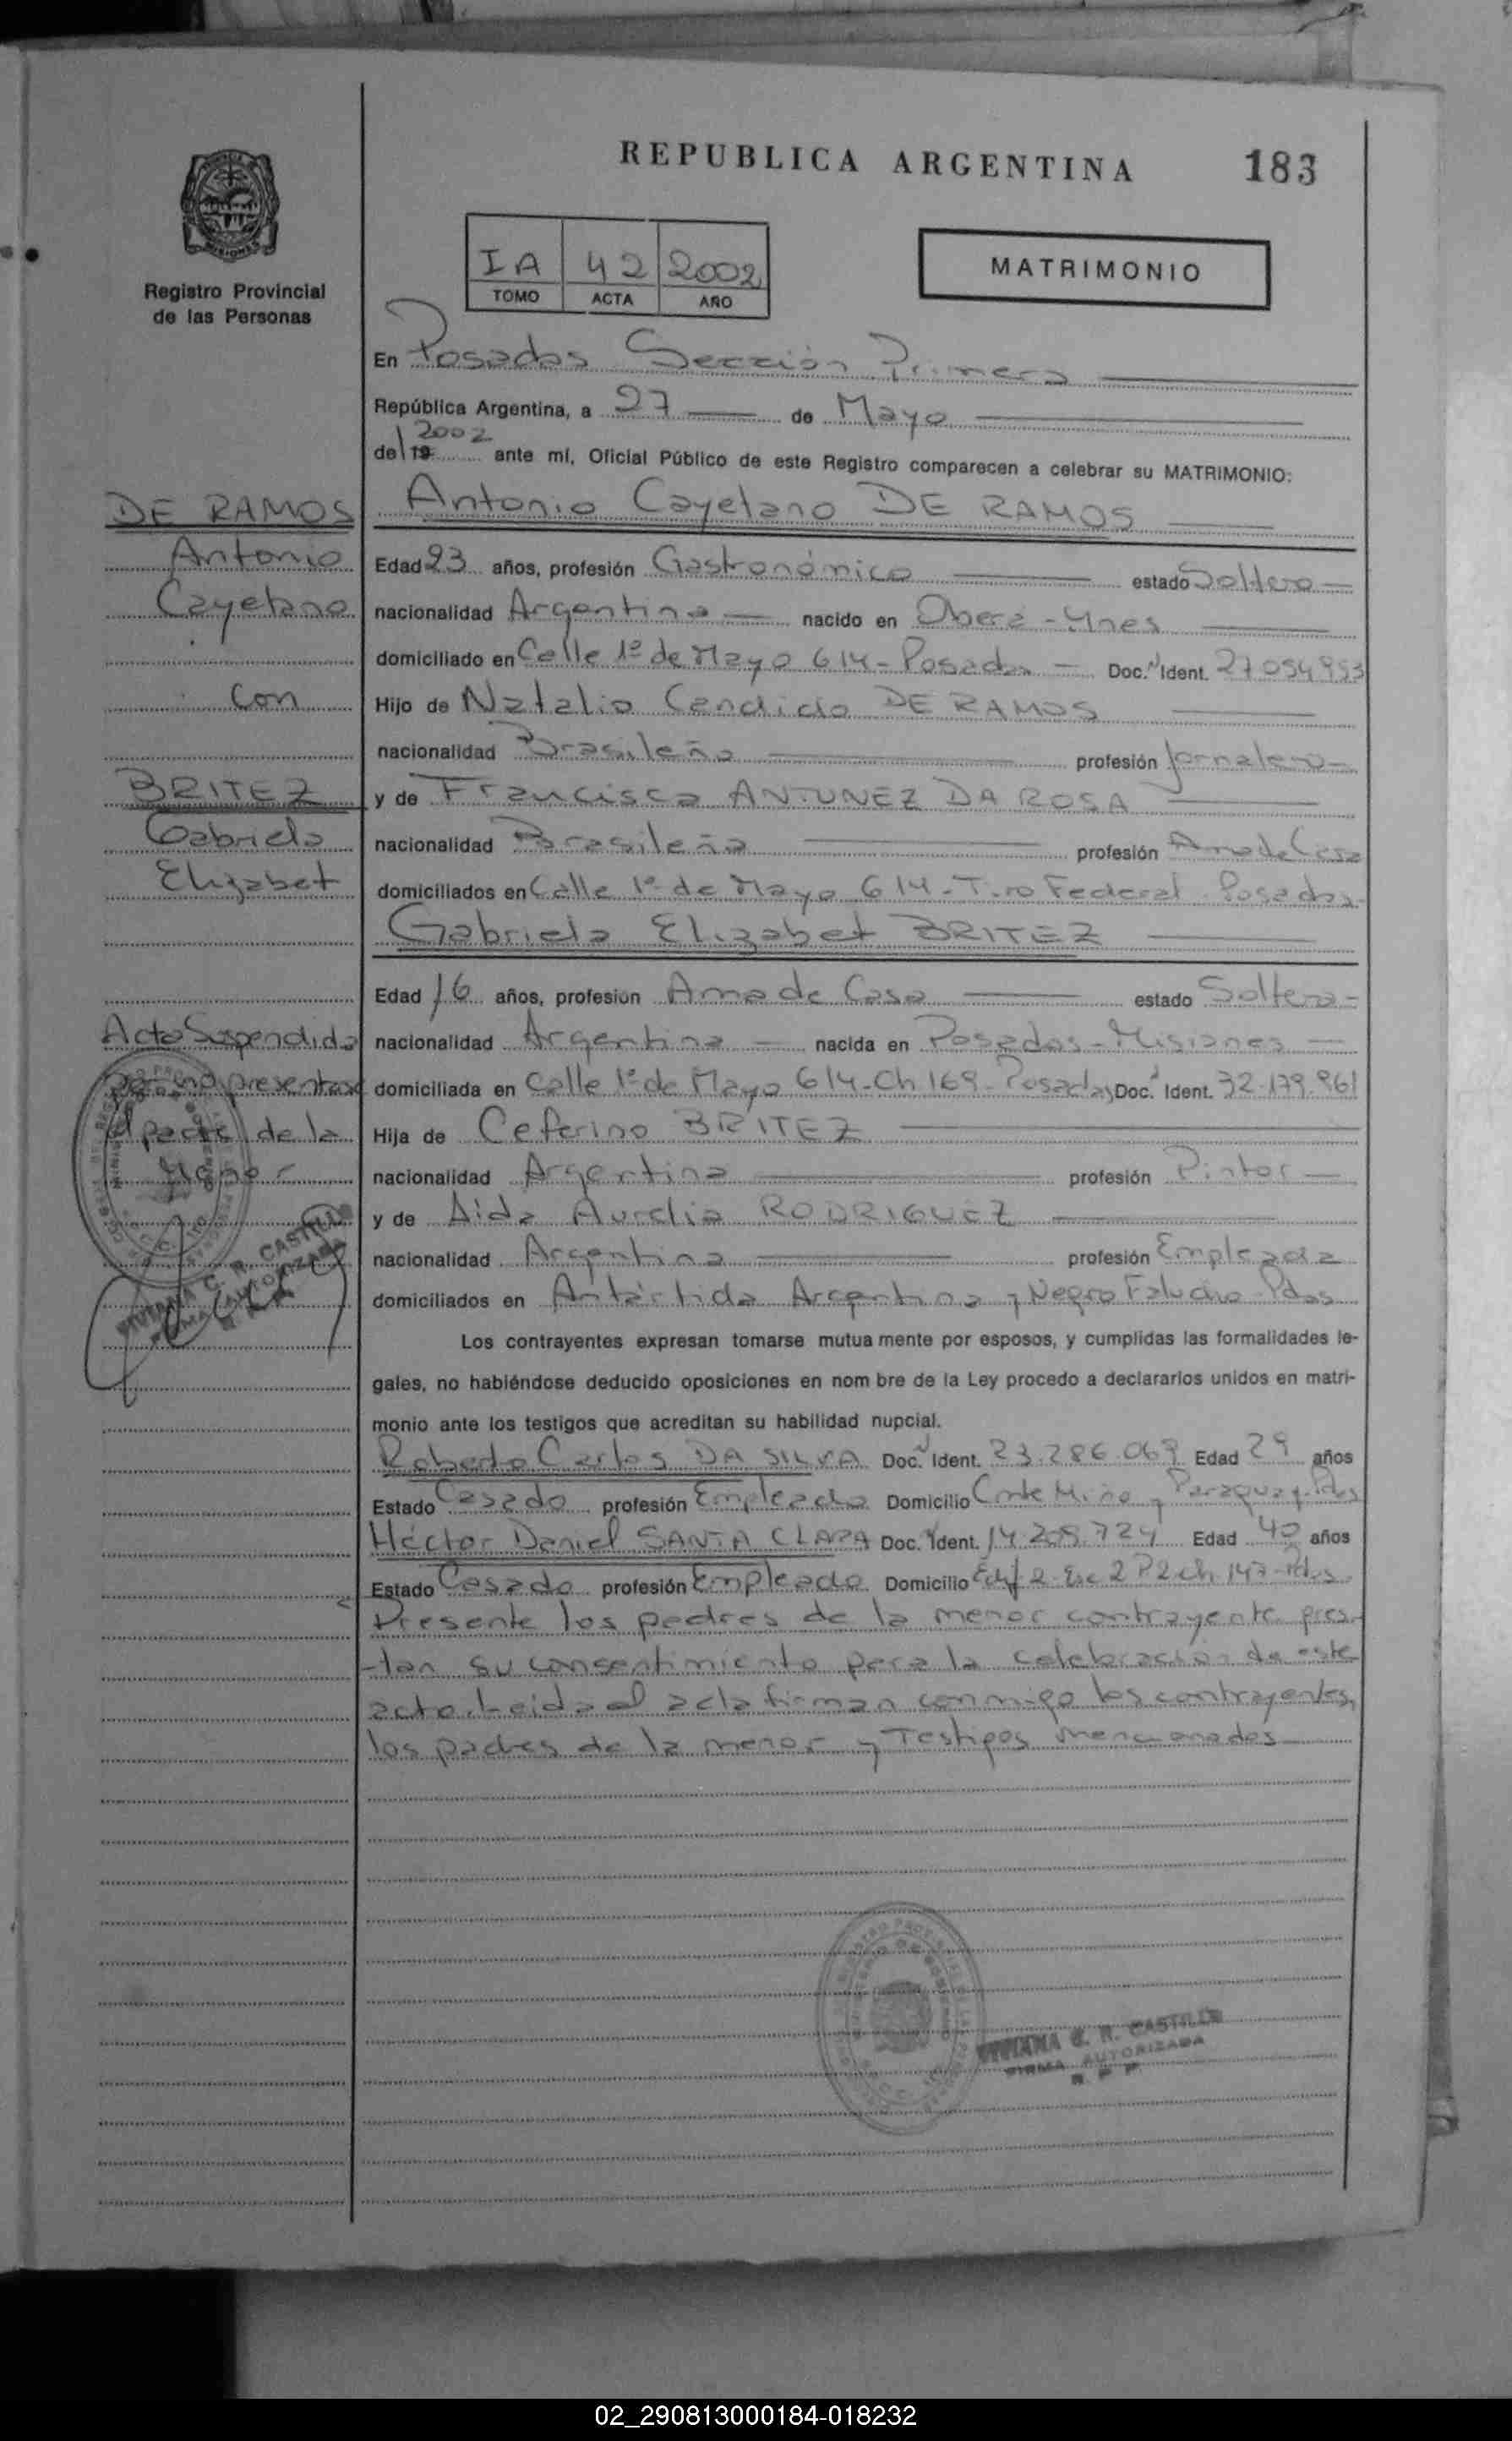 REPUBLICA ARGENTINA 183
MISIONES
Registro Provincial
de las Personas
IA 42 2002
TOMO ACTA AÑO
MATRIMONIO
En Posadas Sección Primera
República Argentina, a 27 de Mayo
2002
del 19 ante mí, Oficial Público de este Registro comparecen a celebrar su MATRIMONIO:
DE RAMOS
Antonio
Cayetano
con
BRITEZ
Gabriela
Elizabet
Acto Suspendido
por no presentarse
el padre de la
menor
VIVIANA C. R. CASTILLO
FIRMA AUTORIZADA
Antonio Cayetano DE RAMOS
Edad 23 años, profesión Gastronómico estado Soltero
nacionalidad Argentina nacido en Oberá - Mnes
domiciliado en Calle 1º de Mayo 614 - Posadas Doc. Ident. 27.054.953
Hijo de Natalio Candido DE RAMOS
nacionalidad Brasileña profesión Jornalero
y de Francisca ANTUNEZ DA ROSA
nacionalidad Brasileña profesión Ama de Casa
domiciliados en Calle 1º de Mayo 614 - Tiro Federal Posadas
Gabriela Elizabet BRITEZ
Edad 16 años, profesión Ama de Casa estado Soltera
nacionalidad Argentina nacida en Posadas - Misiones
domiciliada en Calle 1º de Mayo 614 - Ch 169 - Posadas Doc. Ident. 32.179.961
Hija de Ceferino BRITEZ
nacionalidad Argentina profesión Pintor
y de Aida Aurelia RODRIGUEZ
nacionalidad Argentina profesión Empleada
domiciliados en Antártida Argentina y Negro Falucho - Pdas
Los contrayentes expresan tomarse mutua mente por esposos, y cumplidas las formalidades le-
gales, no habiéndose deducido oposiciones en nom bre de la Ley procedo a declararlos unidos en matri-
monio ante los testigos que acreditan su habilidad nupcial.
Roberto Carlos DA SILVA Doc. Ident. 23.286.069 Edad 29 años
Estado Casado profesión Empleado Domicilio y Paraguay - Pdas
Héctor Daniel SANTA CLARA Doc. Ident. 14.209.724 Edad 40 años
Estado Casado profesión Empleado Domicilio Edif 2 - Esc 2 P2 ch 147 - Pdas
Presente los padres de la menor contrayente pres-
-tan su consentimiento para la celebración de este
acto. Leida el acta firman conmigo los contrayentes,
los padres de la menor y Testigos mencionados
VIVIANA C. R. CASTILLO
FIRMA AUTORIZADA
R P P
02_290813000184-018232